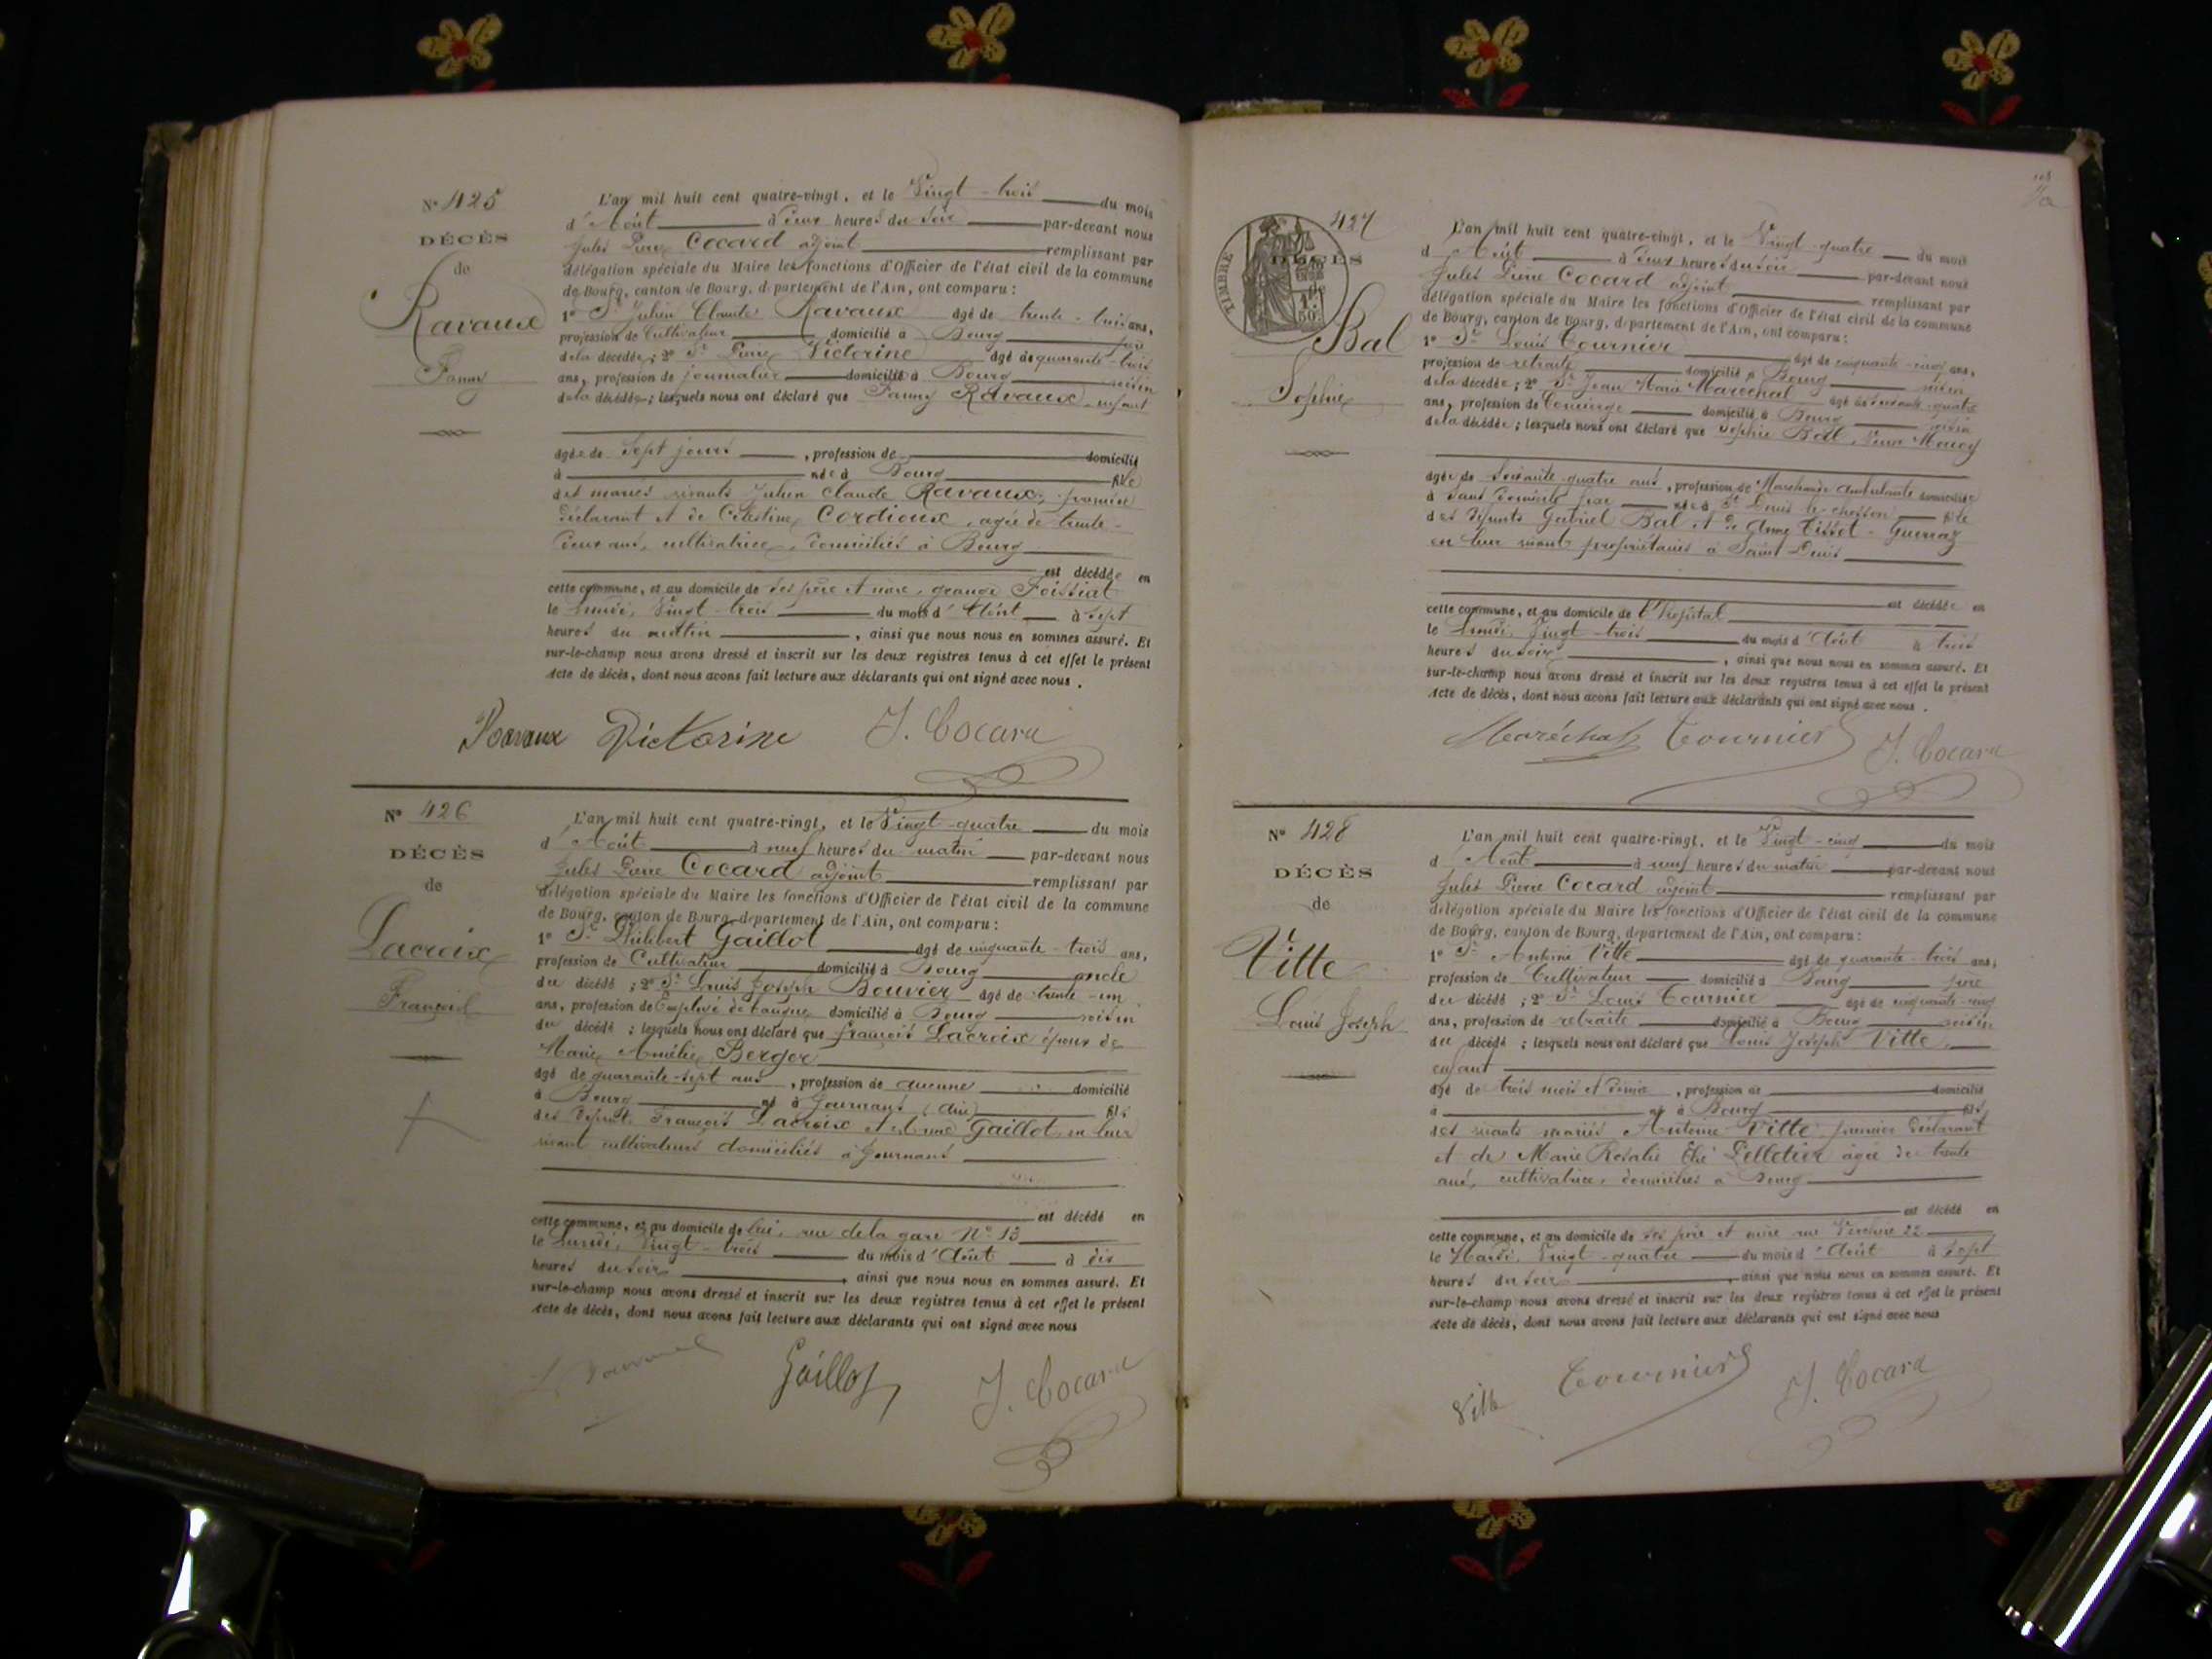 N° 425
DÉCÈS
de
Ravaux
Fanny
L'an mil huit cent quatre-vingt, et le Vingt-trois du mois
d'Août à deux heures du soir par-devant nous
Jules Pierre Cocard adjoint remplissant par
délégation spéciale du Maire les fonctions d'Officier de l'état civil de la commune
de Bourg, canton de Bourg, département de l'Ain, ont comparu :
1° Sr Julien Claude Ravaux âgé de trente-trois ans,
profession de Cultivateur domicilié à Bourg
de la décédée ; 2° Sr Pierre Victorine âgé de quarante-trois
ans, profession de journalier domicilié à Bourg voisin
de la décédée ; lesquels nous ont déclaré que Fanny Ravaux enfant
âgée de Sept jours, profession de domicilié
à née à Bourg fille
des mariés vivants Julien Claude Ravaux, premier
déclarant et de Célestine Cordioux, agée de trente-
deux ans, cultivatrice, domiciliés à Bourg
est décédée en
cette commune, et au domicile de ses père et mère, grange Foissiat
le Lundi, Vingt-trois du mois d'Août à sept
heures du matin, ainsi que nous nous en sommes assuré. Et
sur-le-champ nous avons dressé et inscrit sur les deux registres tenus à cet effet le présent
Acte de décès, dont nous avons fait lecture aux déclarants qui ont signé avec nous.
Ravaux Victorine J. Cocard
N° 426
DÉCÈS
de
Lacroix
François
L'an mil huit cent quatre-vingt, et le Vingt-quatre du mois
d'Août à neuf heures du matin par-devant nous
Jules Pierre Cocard adjoint remplissant par
délégation spéciale du Maire les fonctions d'Officier de l'état civil de la commune
de Bourg, canton de Bourg, département de l'Ain, ont comparu :
1° Sr Philibert Gaillot âgé de cinquante-trois ans,
profession de Cultivateur domicilié à Bourg oncle
du décédé ; 2° Sr Louis Joseph Bouvier âgé de trente-un
ans, profession de Employé de banque domicilié à Bourg voisin
du décédé ; lesquels nous ont déclaré que François Lacroix époux de
Marie Amélie Berger
âgé de quarante-sept ans, profession de aucune domicilié
à Bourg né à Journans (Ain) fils
des défunts François Lacroix et Gaillot, en leur
vivant cultivateurs domiciliés à Journans
est décédé en
cette commune, et au domicile de lui, rue de la gare N° 13
le Lundi, Vingt-trois du mois d'Août à dix
heures du soir, ainsi que nous nous en sommes assuré. Et
sur-le-champ nous avons dressé et inscrit sur les deux registres tenus à cet effet le présent
Acte de décès, dont nous avons fait lecture aux déclarants qui ont signé avec nous
Gaillot J. Cocard
427
TIMBRE
DÉCÈS
de
1f
50c
Bal
Sophie
L'an mil huit cent quatre-vingt, et le Vingt-quatre du mois
d'Août à deux heures du soir par-devant nous
Jules Pierre Cocard adjoint remplissant par
délégation spéciale du Maire les fonctions d'Officier de l'état civil de la commune
de Bourg, canton de Bourg, département de l'Ain, ont comparu :
1° Sr Louis Tournier âgé de cinquante-cinq ans,
profession de retraité domicilié à Bourg voisin
de la décédée ; 2° Sr Jean Marie Maréchal âgé de soixante-quatre
ans, profession de Concierge domicilié à Bourg voisin
de la décédée ; lesquels nous ont déclaré que Sophie Bal, Veuve
âgée de Soixante-quatre ans, profession de Marchande ambulante domiciliée
à sans domicile fixe née à St Denis le chosson fille
des défunts Gabriel Bal et de Anne Tissot-Guerraz
en leur vivant propriétaires à Saint Denis
est décédée en
cette commune, et au domicile de l'hôpital
le Lundi, Vingt-trois du mois d'Août à trois
heures du soir, ainsi que nous nous en sommes assuré. Et
sur-le-champ nous avons dressé et inscrit sur les deux registres tenus à cet effet le présent
Acte de décès, dont nous avons fait lecture aux déclarants qui ont signé avec nous.
Maréchal Tournier J. Cocard
N° 428
DÉCÈS
de
Vitte
Louis Joseph
L'an mil huit cent quatre-vingt, et le Vingt-cinq du mois
d'Août à neuf heures du matin par-devant nous
Jules Pierre Cocard adjoint remplissant par
délégation spéciale du Maire les fonctions d'Officier de l'état civil de la commune
de Bourg, canton de Bourg, département de l'Ain, ont comparu :
1° Sr Antoine Vitte âgé de quarante-trois ans,
profession de Cultivateur domicilié à Bourg père
du décédé ; 2° Sr Louis Tournier âgé de cinquante-cinq
ans, profession de retraité domicilié à Bourg voisin
du décédé ; lesquels nous ont déclaré que Louis Joseph Vitte,
enfant
âgé de trois mois et demi, profession de domicilié
à né à Bourg fils
des vivants mariés Antoine Vitte premier déclarant
et de Marie Rosalie Pelletier agée de trente
ans, cultivatrice, domiciliés à Bourg
est décédé en
cette commune, et au domicile de ses père et mère rue Verchère 22
le Mardi, Vingt-quatre du mois d'Août à sept
heures du soir, ainsi que nous nous en sommes assuré. Et
sur-le-champ nous avons dressé et inscrit sur les deux registres tenus à cet effet le présent
Acte de décès, dont nous avons fait lecture aux déclarants qui ont signé avec nous
Vitte Tournier J. Cocard